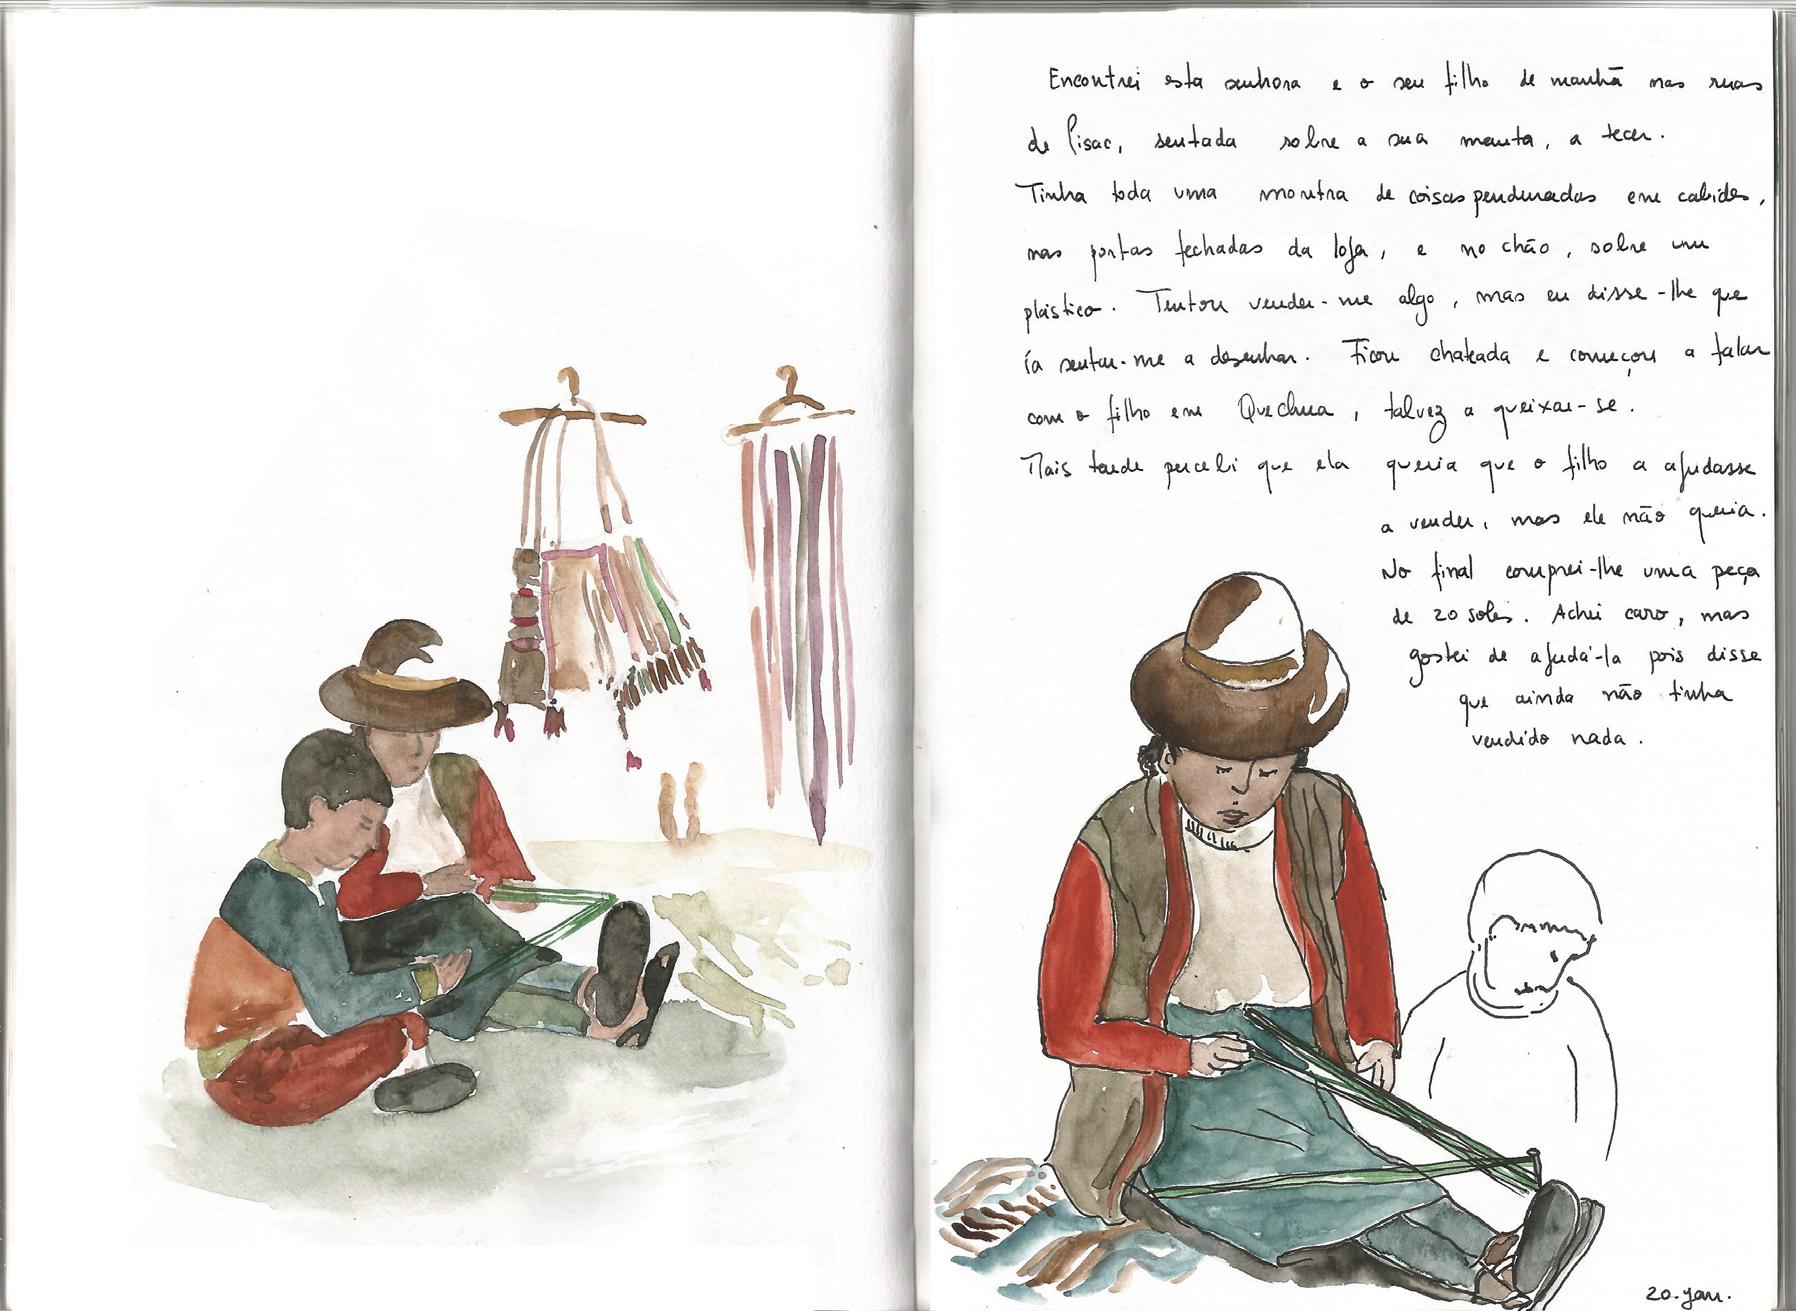 Encontrei esta senhora e o seu filho de manhã nas ruas
de Pisac, sentada sobre a sua manta, a tecer.
Tinha toda uma montra de coisas penduradas em cabides,
nas portas fechadas da loja, e no chão, sobre um
plástico. Tentou vender-me algo, mas eu disse-lhe que
ía sentar-me a desenhar. Ficou chateada e começou a falar
com o filho em Quechua, talvez a queixar-se.
Mais tarde percebi que ela queria que o filho a ajudasse
a vender, mas ele não queria.
No final comprei-lhe uma peça
de 20 soles. Achei caro, mas
gostei de ajudá-la pois disse
que ainda não tinha
vendido nada.
20.Jan.